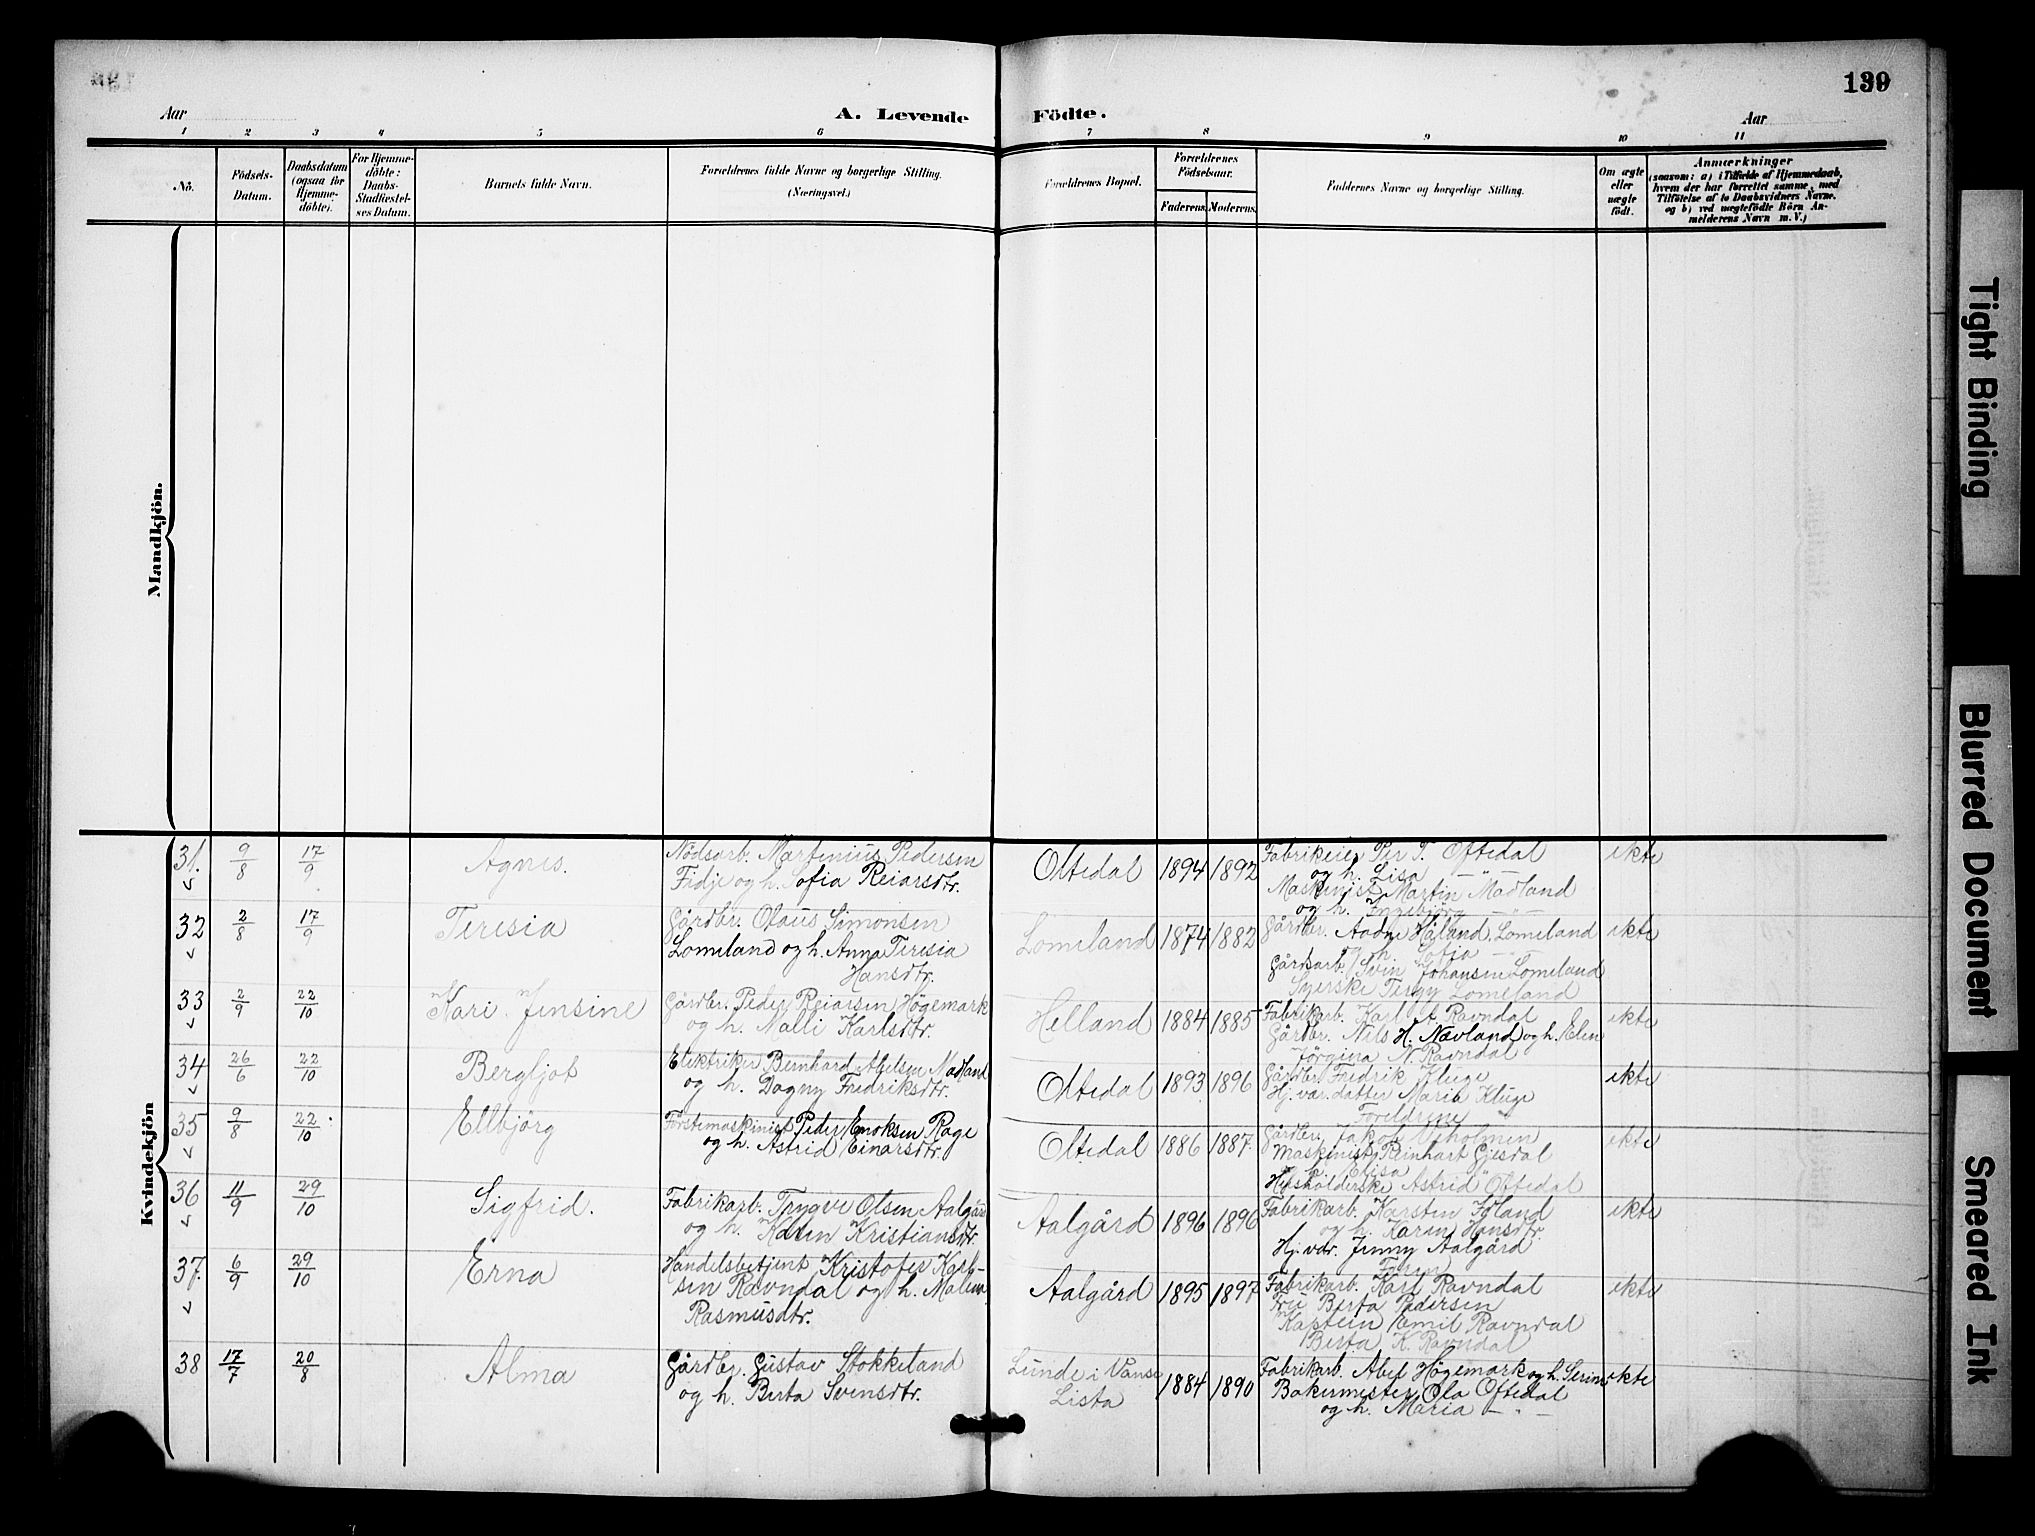 139
Aar
A. Levende Födte.
Aar
1 2 3 4 5 6 7 8 9 10 11
No.
Födsels-Datum.
Daabsdatum (ogsaa for Hjemme-döbte).
For Hjemme-döbte: Daabs-Stadfæstel-ses Datum.
Barnets fulde Navn.
Forældrenes fulde Navne og borgerlige Stilling. (Næringsvei.)
Forældrenes Bopæl.
Forældrenes Födselsaar.
Faderens. Moderens.
Faddernes Navne og borgerlige Stilling.
Om ægte eller uægte födt.
Anmærkninger
(saasom: a) i Tilfælde af Hjemmedaab,
hvem der har forrettet samme, med
Tilföielse af to Daabsvidners Navne,
og b) ved uægtefödte Börn An-
melderens Navn m. V.)
Mandkjön.
Kvindekjön
31. 9/8 17/9 Agnes.
Nödsarb. Martinius Pedersen
Fidje og h. Sofia Reiarsdtr.
Oltedal 1894 1892
Fabrikeier Per T. Oftedal
og h. Lisa — " —
Maskinist Martin Madland
og h. Ingebjörg — " —
ekte
32 2/8 17/9 Teresia
Gårdbr. Olaus Simonsen
Lomeland og h. Anna Teresia
Hansdtr.
Lomeland 1874 1882
Gårdbr. Aadne Håland, Lomeland
og h. Sofia — " —
Gårdsarb. Svein Johansen Lomeland
Syerske Tergy Lomeland
ekte
33 2/9 22/10 Kari Jensine
Gårdbr. Peder Reiarsen Högemark
og h. Malli Karlsdtr.
Helland 1884 1885
Fabrikarb. Karl A Ravndal
Gårdbr. Nils H. Nævland og h. Elen
Jörgina N. Ravndal
ekte
34 26/6 22/10 Bergljot
Elektriker Bernhard Abelsen Madland
og h. Dagny Fredriksdtr.
Oltedal 1893 1896
Gårdbr. Fredrik Kluge
Hj. vær. datter Maria Kluge
Foreldrene
ekte
35 9/8 22/10 Ellbjörg
Förstemaskinist Peder Enoksen Rage
og h. Astrid Einarsdtr.
Oltedal 1886 1887.
Gårdbr. Jakob
Maskinist Reinhart Gjesdal
og h. Elisa
Husholderske Astrid Oftedal
ekte
36 11/9 29/10 Sigfrid.
Fabrikarb. Trygve Olsen Aalgård
og h. Karen Kristiansdtr.
Aalgård 1896 1896
Fabrikarb. Karsten
og h. Karen Hansdtr.
Hj. vær. Jenny Aalgård
Faren
ekte
37. 6/9 29/10 Erna
Handelsbetjent Kristofer Karl-
sen Ravndal og h. Malene
Rasmusdtr.
Aalgård 1895 1897
Fabrikarb. Karl Ravndal
Fru Berta Pedersen
Kaptein Emil Ravndal
Berta K. Ravndal
ekte
38 17/7 20/8 Alma
Gårdbr. Gustav Stokkeland
og h. Berta Svensdtr.
Lunde i Vanse
Lista
1884 1890
Fabrikarb. Abel Högemark og h. Serine
Bakermester Ola Oftedal
og h. Maria — " —
ekte
Tight Binding
Blurred Document
Smeared Ink